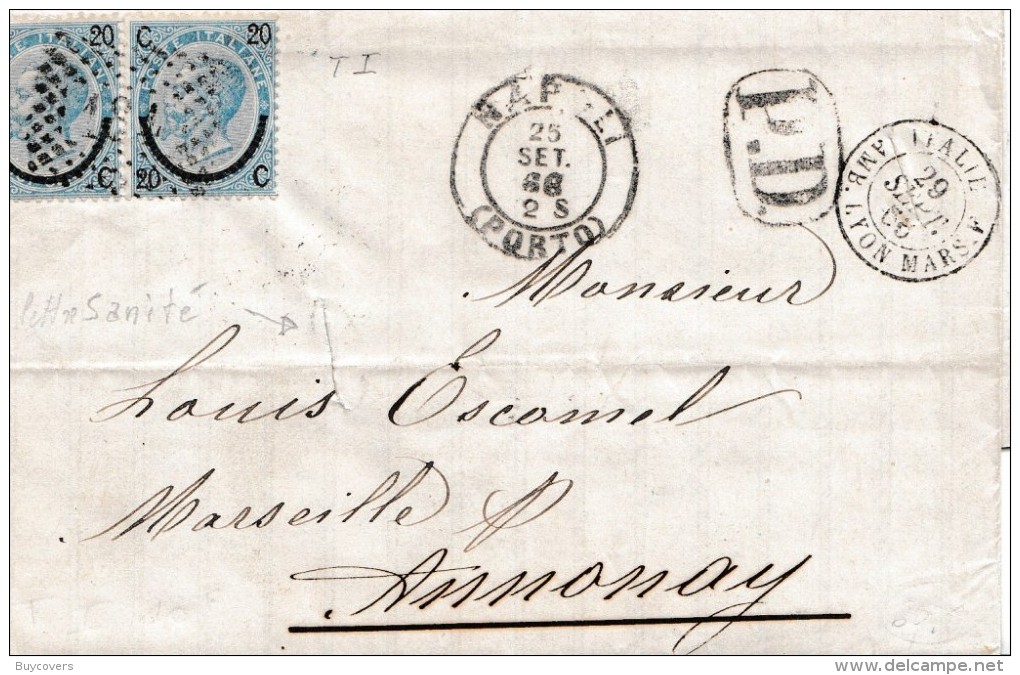 20 C 20
POSTE ITALIANE
C 20 C
T I
NAPOLI
25
SET.
66
2 S
(PORTO)
P.D
ITALIE
29
SEPT.
66
AMB. LYON MARS.
lettre Sanité
Monsieur
Louis Escomel
Marseille P
Annonay
Buycovers
www.delcampe.net